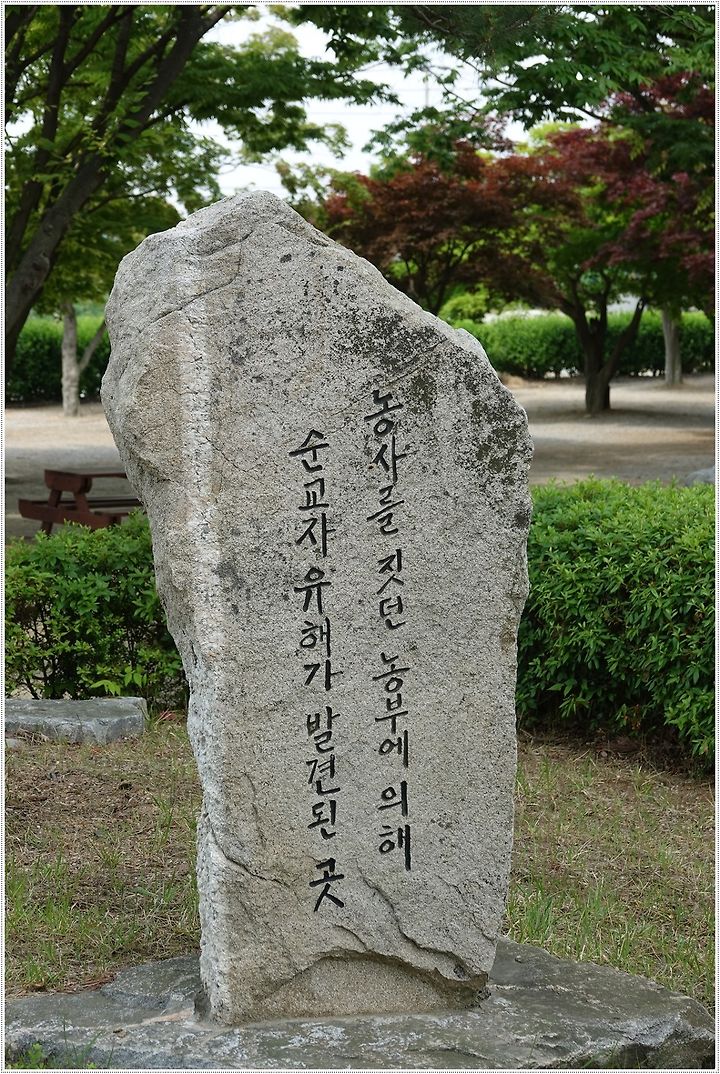 농사를 짓던 농부에 의해
순교자 유해가 발견된 곳